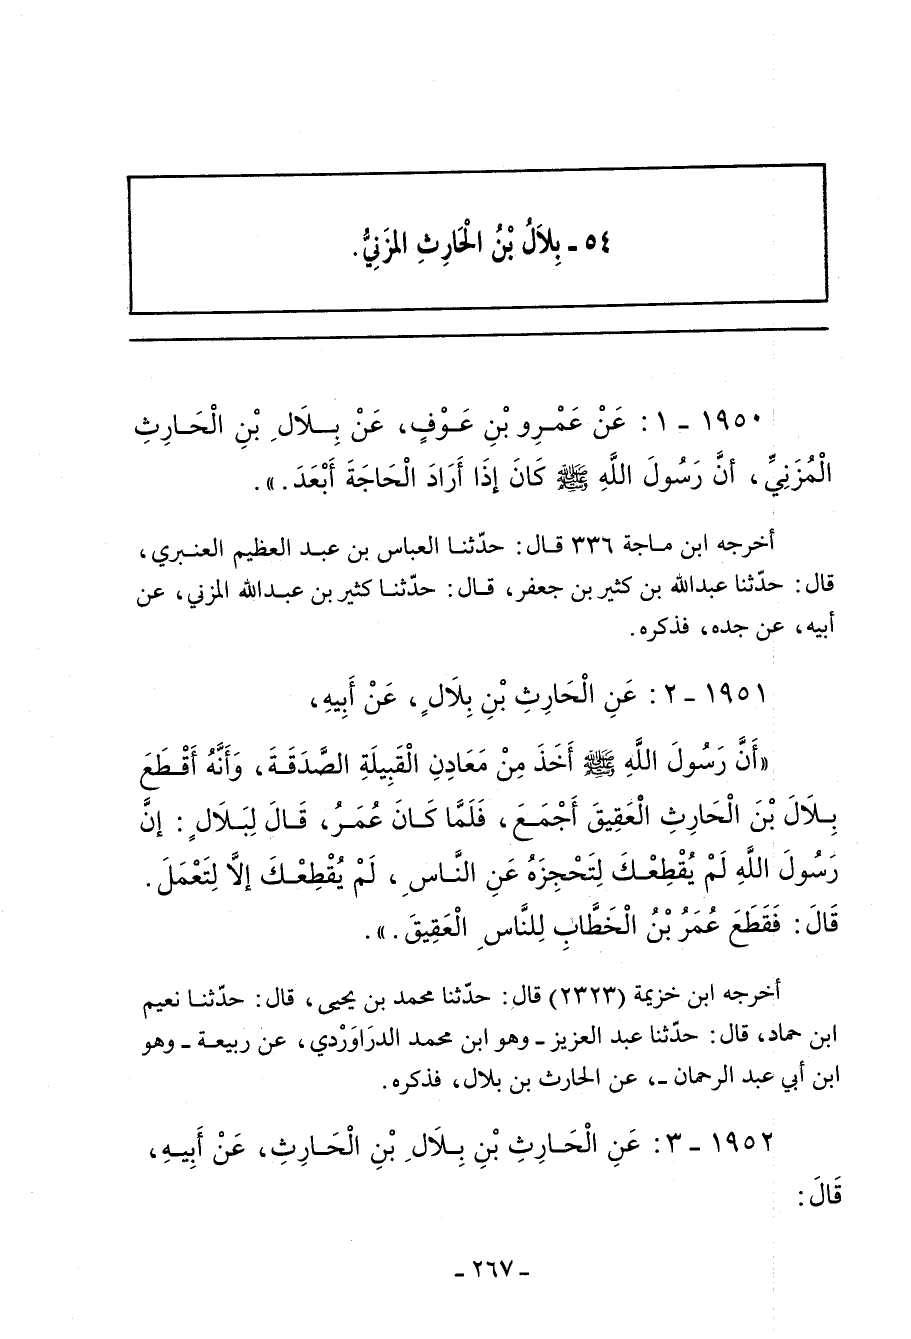 ٥٤ - بِلاَلُ بْنُ الْحَارِثِ المزَنِيُّ.
١٩٥٠ - ١: عَنْ عَمْرِو بْنِ عَوْفٍ، عَنْ بِلَالِ بْنِ الْحَارِثِ
الْمُزَنِيِّ، أنَّ رَسُولَ اللَّهِ ﷺ كَانَ إِذَا أَرَادَ الْحَاجَةَ أَبْعَدَ.».
أخرجه ابن ماجة ٣٣٦ قال: حدّثنا العباس بن عبد العظيم العنبري،
قال: حدّثنا عبدالله بن كثير بن جعفر، قال: حدّثنا كثير بن عبدالله المزني، عن
أبيه، عن جده، فذكره.
١٩٥١ - ٢: عَنِ الْحَارِثِ بْنِ بِلَالٍ، عَنْ أَبِيهِ،
«أَنَّ رَسُولَ اللَّهِ ﷺ أَخَذَ مِنْ مَعَادِنِ الْقَبِيلَةِ الصَّدَقَةَ، وَأَنَّهُ أَقْطَعَ
بِلَالَ بْنَ الْحَارِثِ الْعَقِيقَ أَجْمَعَ، فَلَمَّا كَانَ عُمَرُ، قَالَ لِبَلَالٍ: إنَّ
رَسُولَ اللهِ لَمْ يُقْطِعْكَ لِتَحْجِزَهُ عَنِ النَّاسِ، لَمْ يُقْطِعْكَ إلَّا لِتَعْمَلَ.
قَالَ: فَقَطَعَ عُمَرُ بْنُ الْخَطَّابِ لِلنَّاسِ الْعَقِيقَ.».
أخرجه ابن خزيمة (٢٣٢٣) قال: حدّثنا محمد بن يحيى، قال: حدّثنا نعيم
ابن حماد، قال: حدّثنا عبد العزيز - وهو ابن محمد الدرَاوَرْدي، عن ربيعة - وهو
ابن أبي عبد الرحمان -، عن الحارث بن بلال، فذكره.
١٩٥٢ - ٣: عَنِ الْحَارِثِ بْنِ بِلَالِ بْنِ الْحَارِثِ، عَنْ أَبِيهِ،
قَالَ:
- ٢٦٧ -